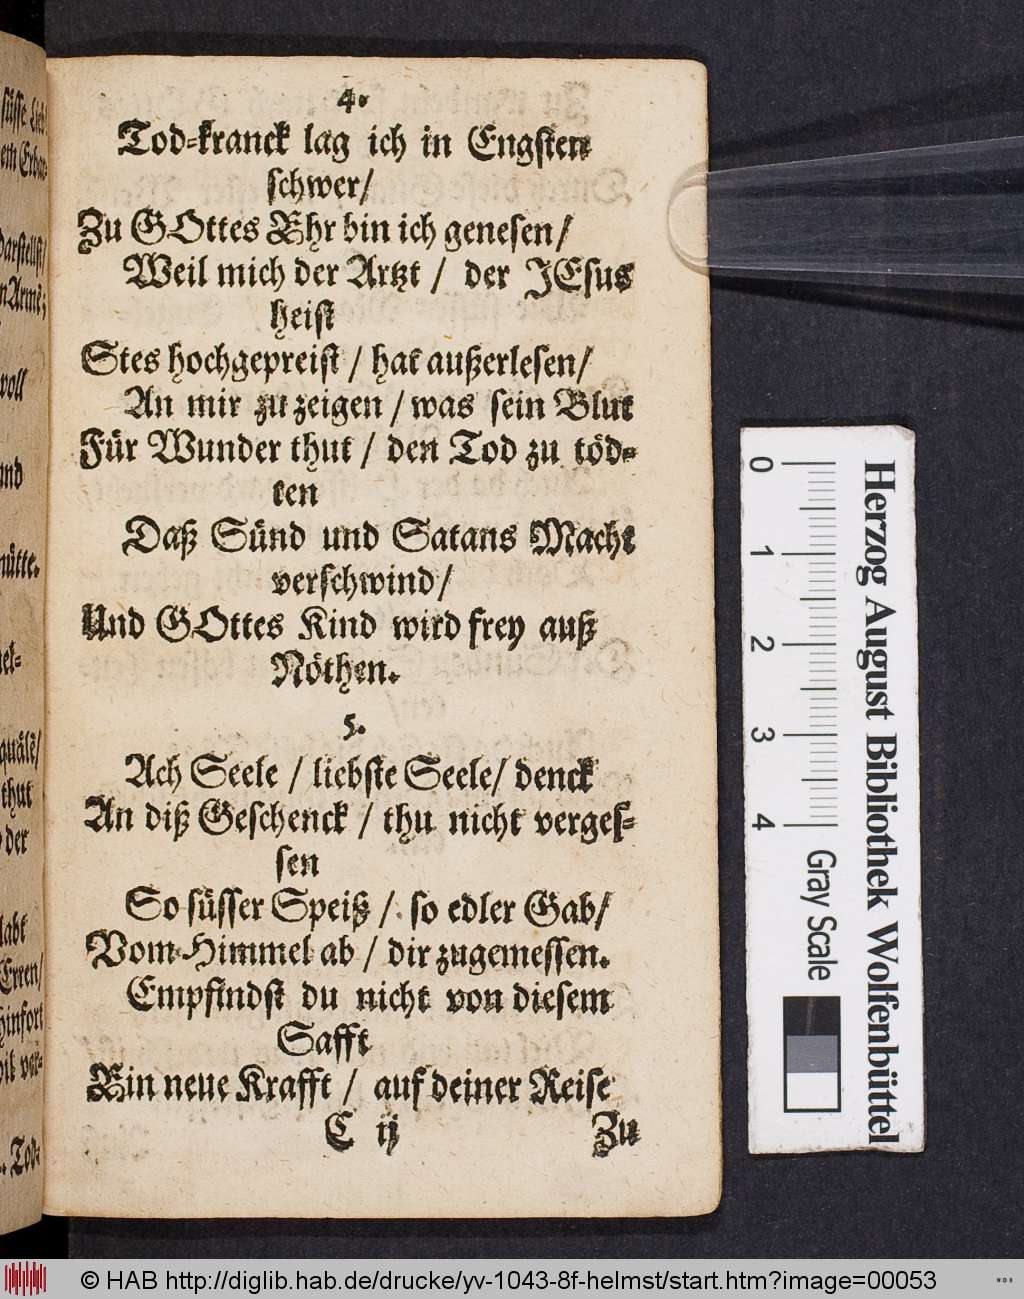 4.
Tod-kranck lag ich in Engsten
schwer/
Zu GOttes Ehr bin ich genesen/
Weil mich der Artzt / der JEsus
heist
Stes hochgepreist / hat außerlesen/
An mir zu zeigen / was sein Blut
Für Wunder thut / den Tod zu töd-
ten
Daß Sünd und Satans Macht
verschwind/
Und GOttes Kind wird frey auß
Nöthen.
5.
Ach Seele / liebste Seele/ denck
An diß Geschenck / thu nicht verges-
sen
So süsser Speiß / so edler Gab/
Vom Himmel ab / dir zugemessen.
Empfindst du nicht von diesem
Safft
Ein neue Krafft / auf deiner Reise
C ij Zu
süsse Lieb
darstellst/
voll
und
thut
der
labt
hinfort
Tod-
0 1 2 3 4
Herzog August Bibliothek Wolfenbüttel
Gray Scale
© HAB http://diglib.hab.de/drucke/yv-1043-8f-helmst/start.htm?image=00053
WDB